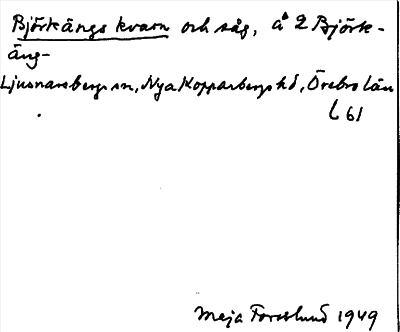 Björkängs kvarn och såg, å 2 Björk-
äng-
Ljusnarsbergs sn, Nya Kopparbergs hd, Örebro län
l 61
Maja Forsslund 1949